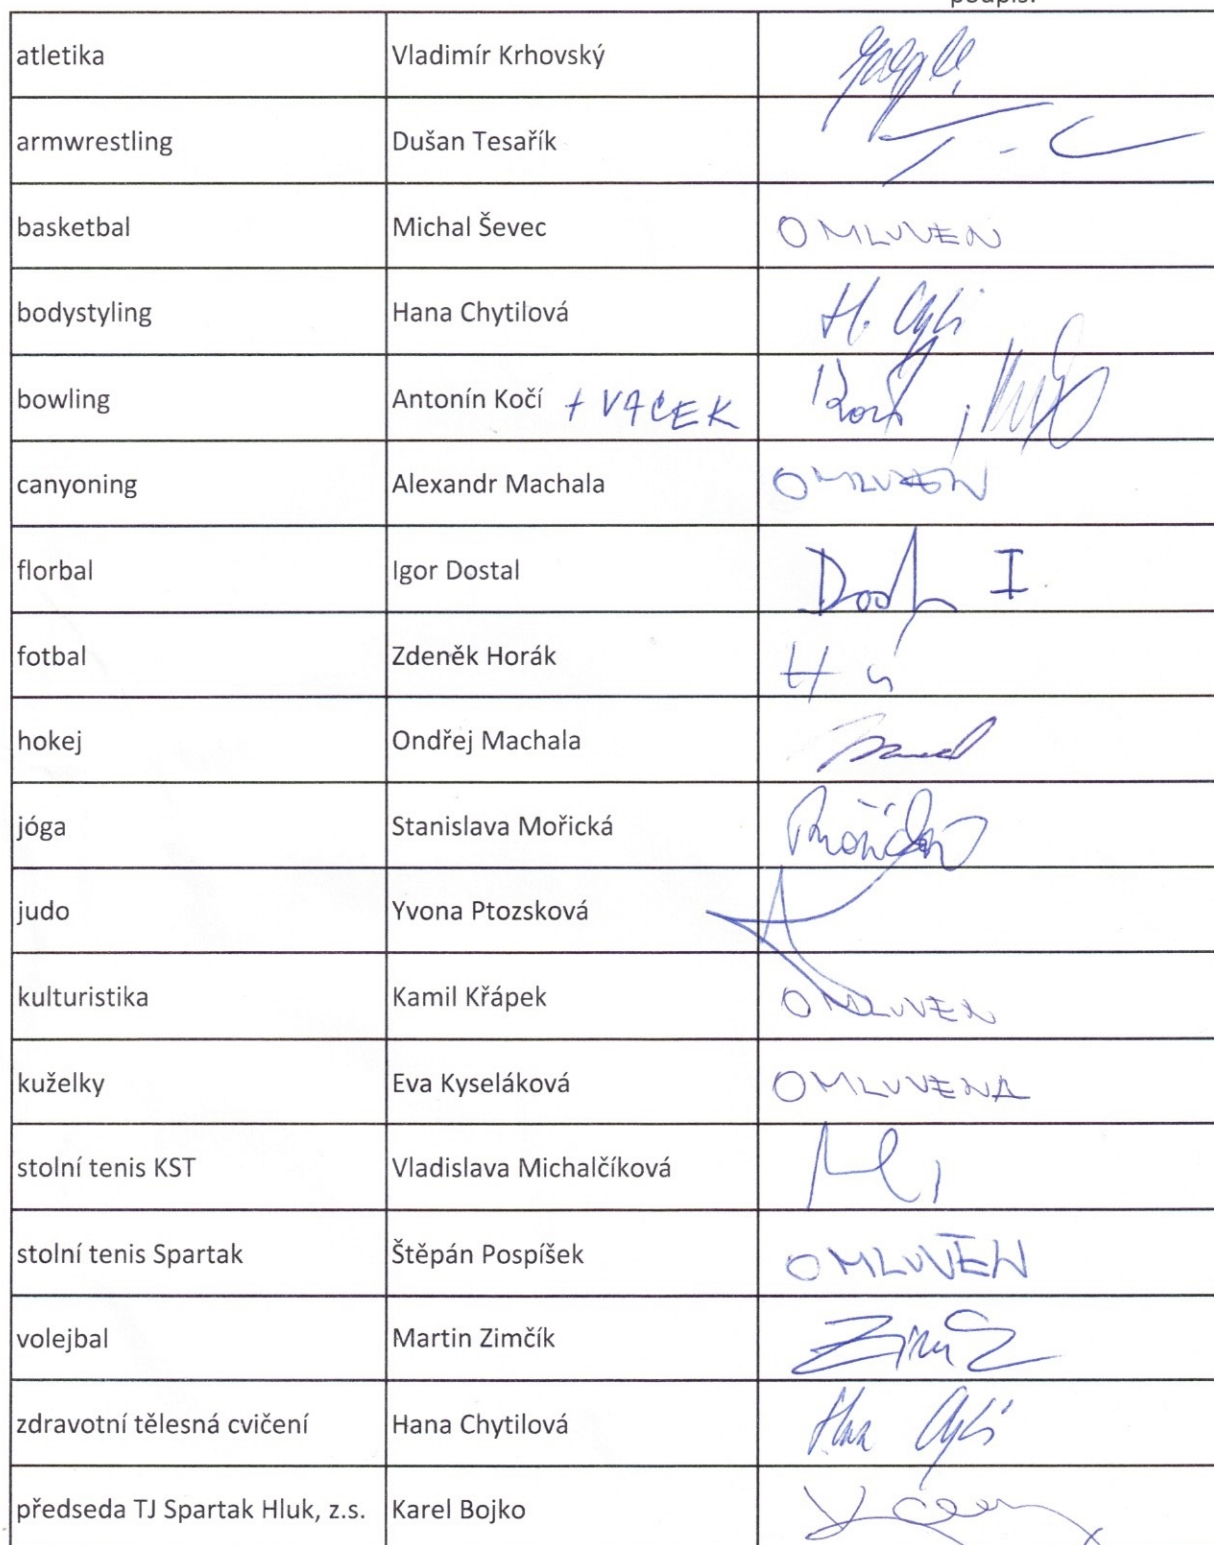 podpis:
atletika Vladimír Krhovský
armwrestling Dušan Tesařík
basketbal Michal Ševec OMLUVEN
bodystyling Hana Chytilová H. Chyti
bowling Antonín Kočí + VACEK Kočí
canyoning Alexandr Machala OMLUVEN
florbal Igor Dostal Dost I.
fotbal Zdeněk Horák
hokej Ondřej Machala
jóga Stanislava Mořická Mořická
judo Yvona Ptozsková
kulturistika Kamil Křápek OMLUVEN
kuželky Eva Kyseláková OMLUVENA
stolní tenis KST Vladislava Michalčíková
stolní tenis Spartak Štěpán Pospíšek OMLUVEN
volejbal Martin Zimčík
zdravotní tělesná cvičení Hana Chytilová
předseda TJ Spartak Hluk, z.s. Karel Bojko